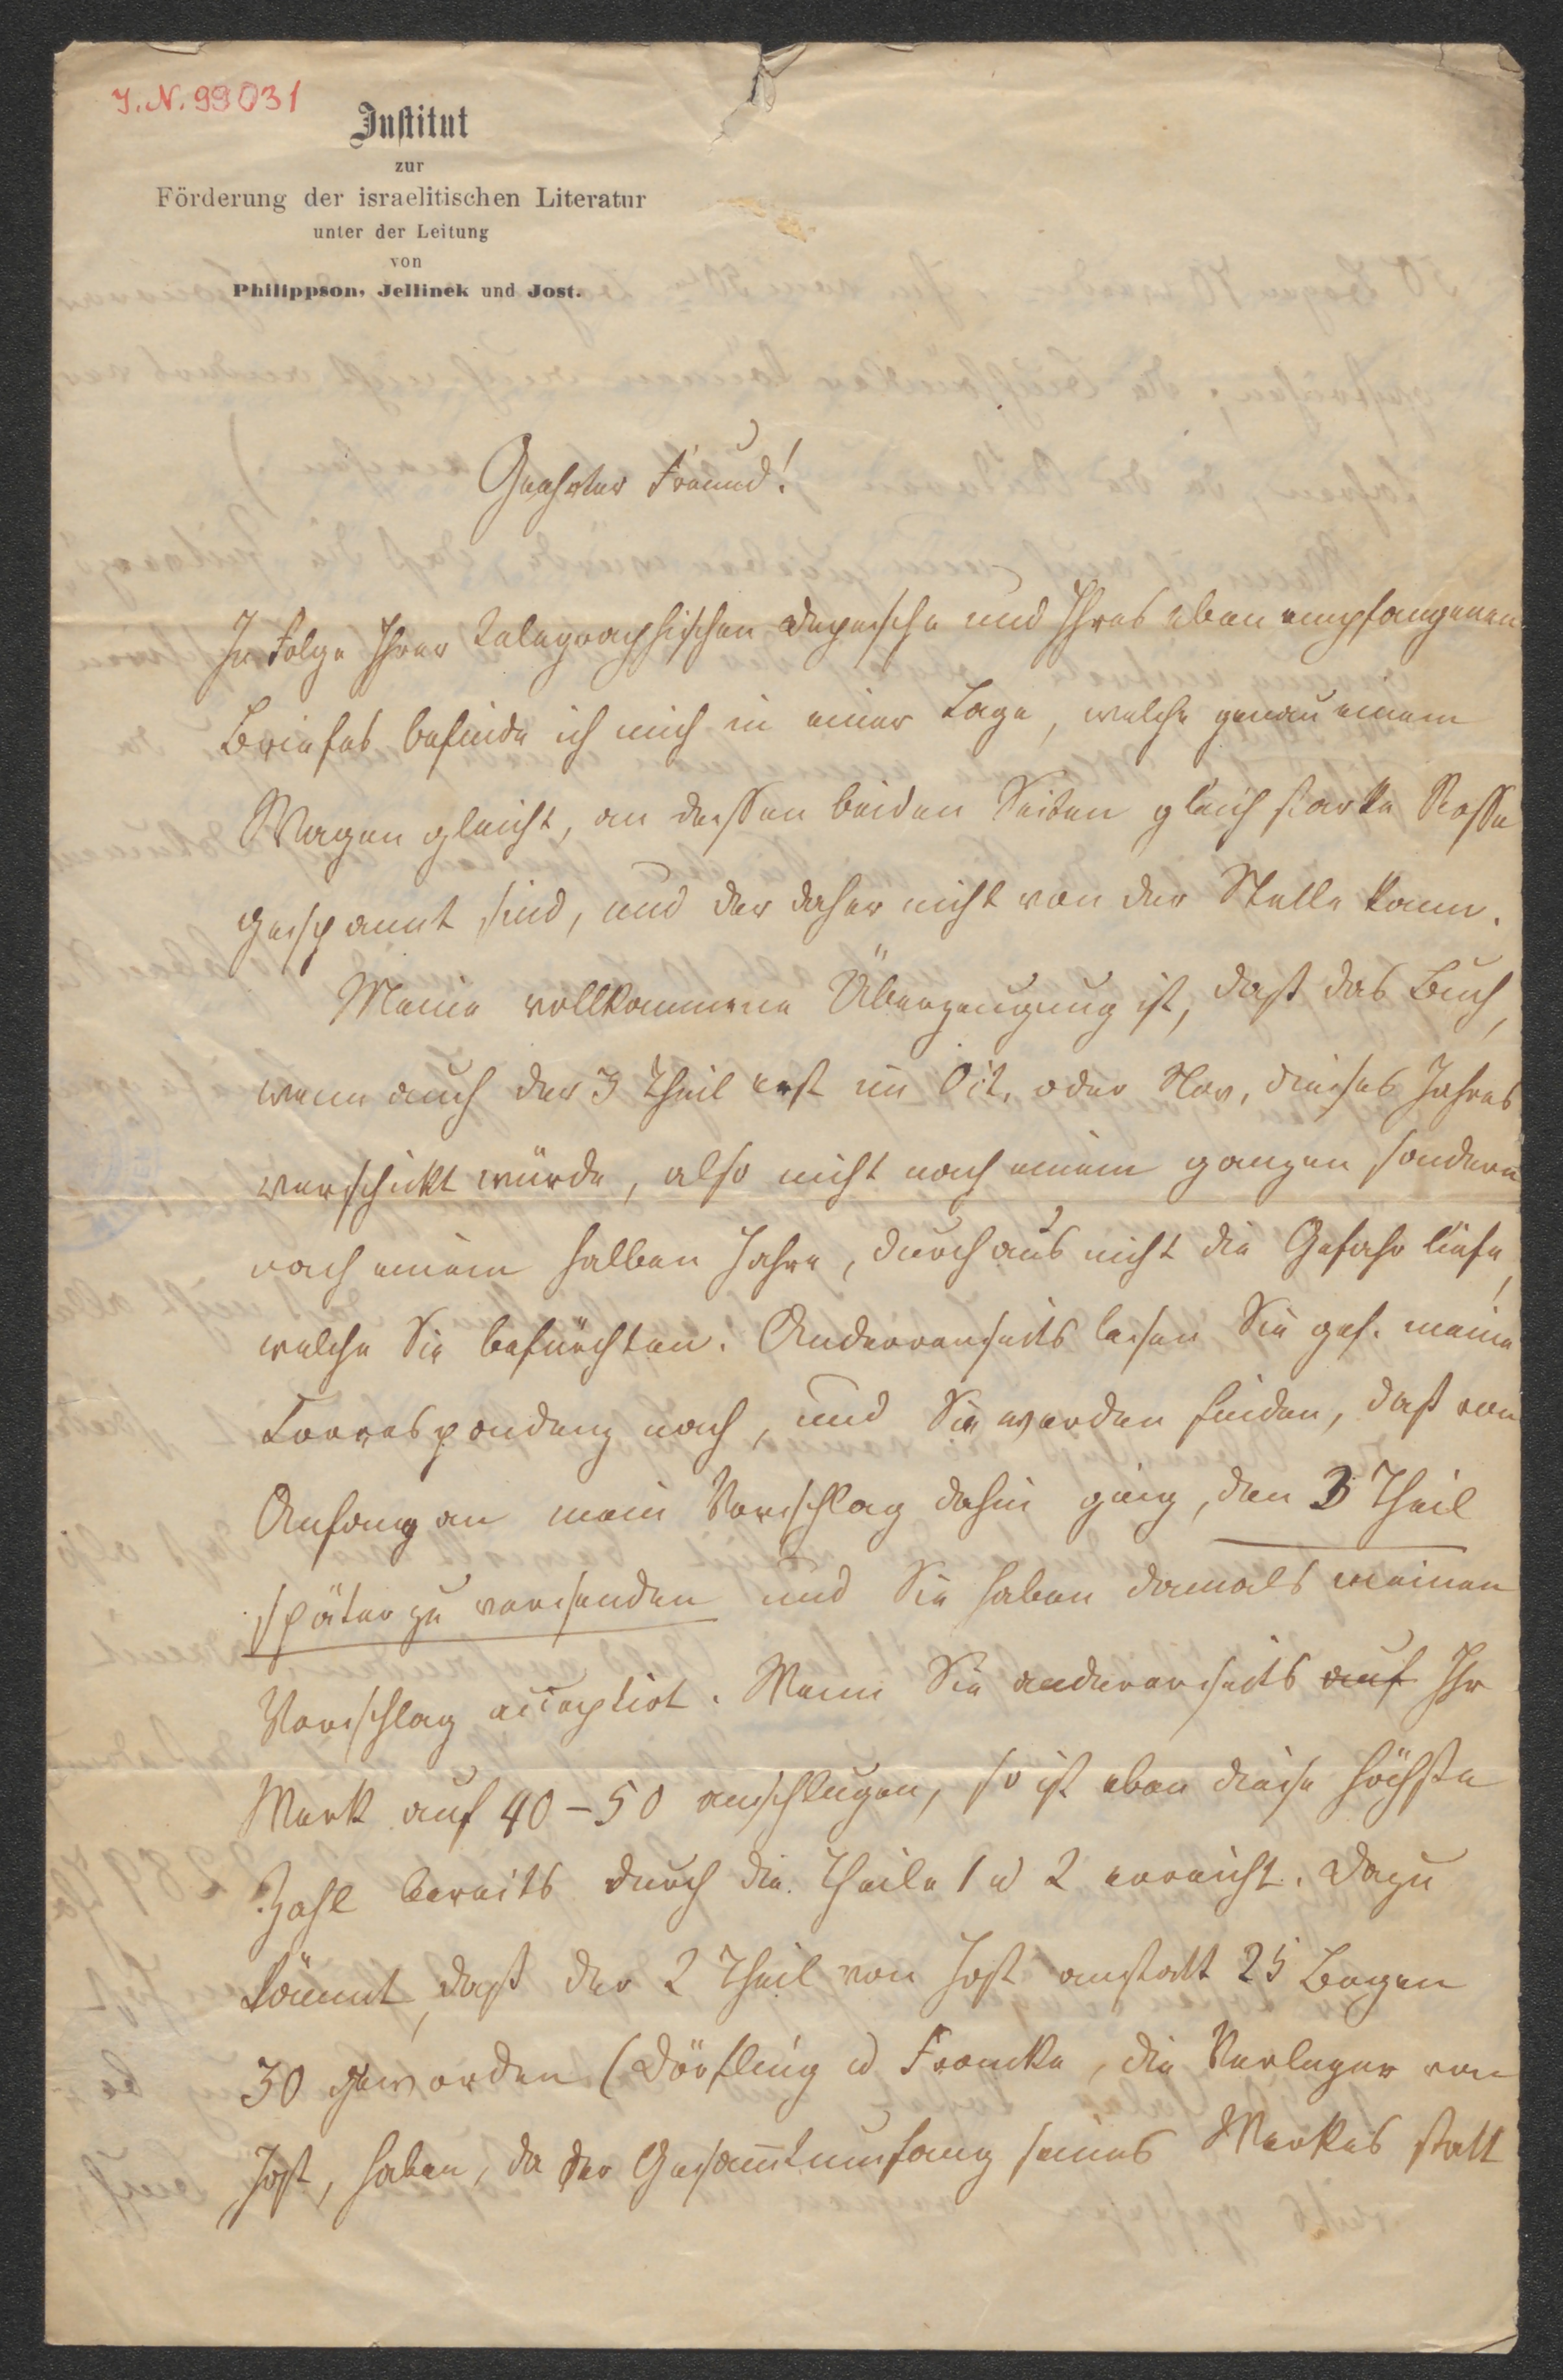 J. N. 99031
Institut
zur
Förderung der israelitischen Literatur
unter der Leitung
von
Philippson, Jellinek und Jost.
Geehrter Freund!
In Folge Ihrer telegraphischen Depesche und Ihres eben empfangenen
Briefes befinde ich mich in einer Lage, welche genau einem
Wagen gleicht, an dessen beiden Seiten gleich starke Rosse
gespannt sind, und der daher nicht von der Stelle kann.
Meine vollkommene Überzeugung ist, daß das Buch,
wenn auch der 3 Theil erst im Oct. oder Nov. dieses Jahres
verschickt würde, also nicht nach einem ganzen sondern
nach einem halben Jahre, durchaus nicht die Gefahr liefe,
welche Sie befürchten. Anderrerseits lesen Sie gef. meine
Correspondenz nach, und Sie werden finden, daß von
Anfang an mein Vorschlag dahin ging, den 3 Theil
später zu versenden und Sie haben damals meinen
Vorschlag acceptirt. Wenn Sie andererseits auf Ihr
Werk auf 40-50 anschlugen, so ist eben diese höchste
Zahl bereits durch die Theile 1 u 2 erreicht. Dazu
kömmt, daß der 2 Theil von Jost anstatt 25 Bogen
30 geworden (Dörfling u Francke, die Verleger von
Jost, haben, da der Gesammtumfang seines Werkes statt